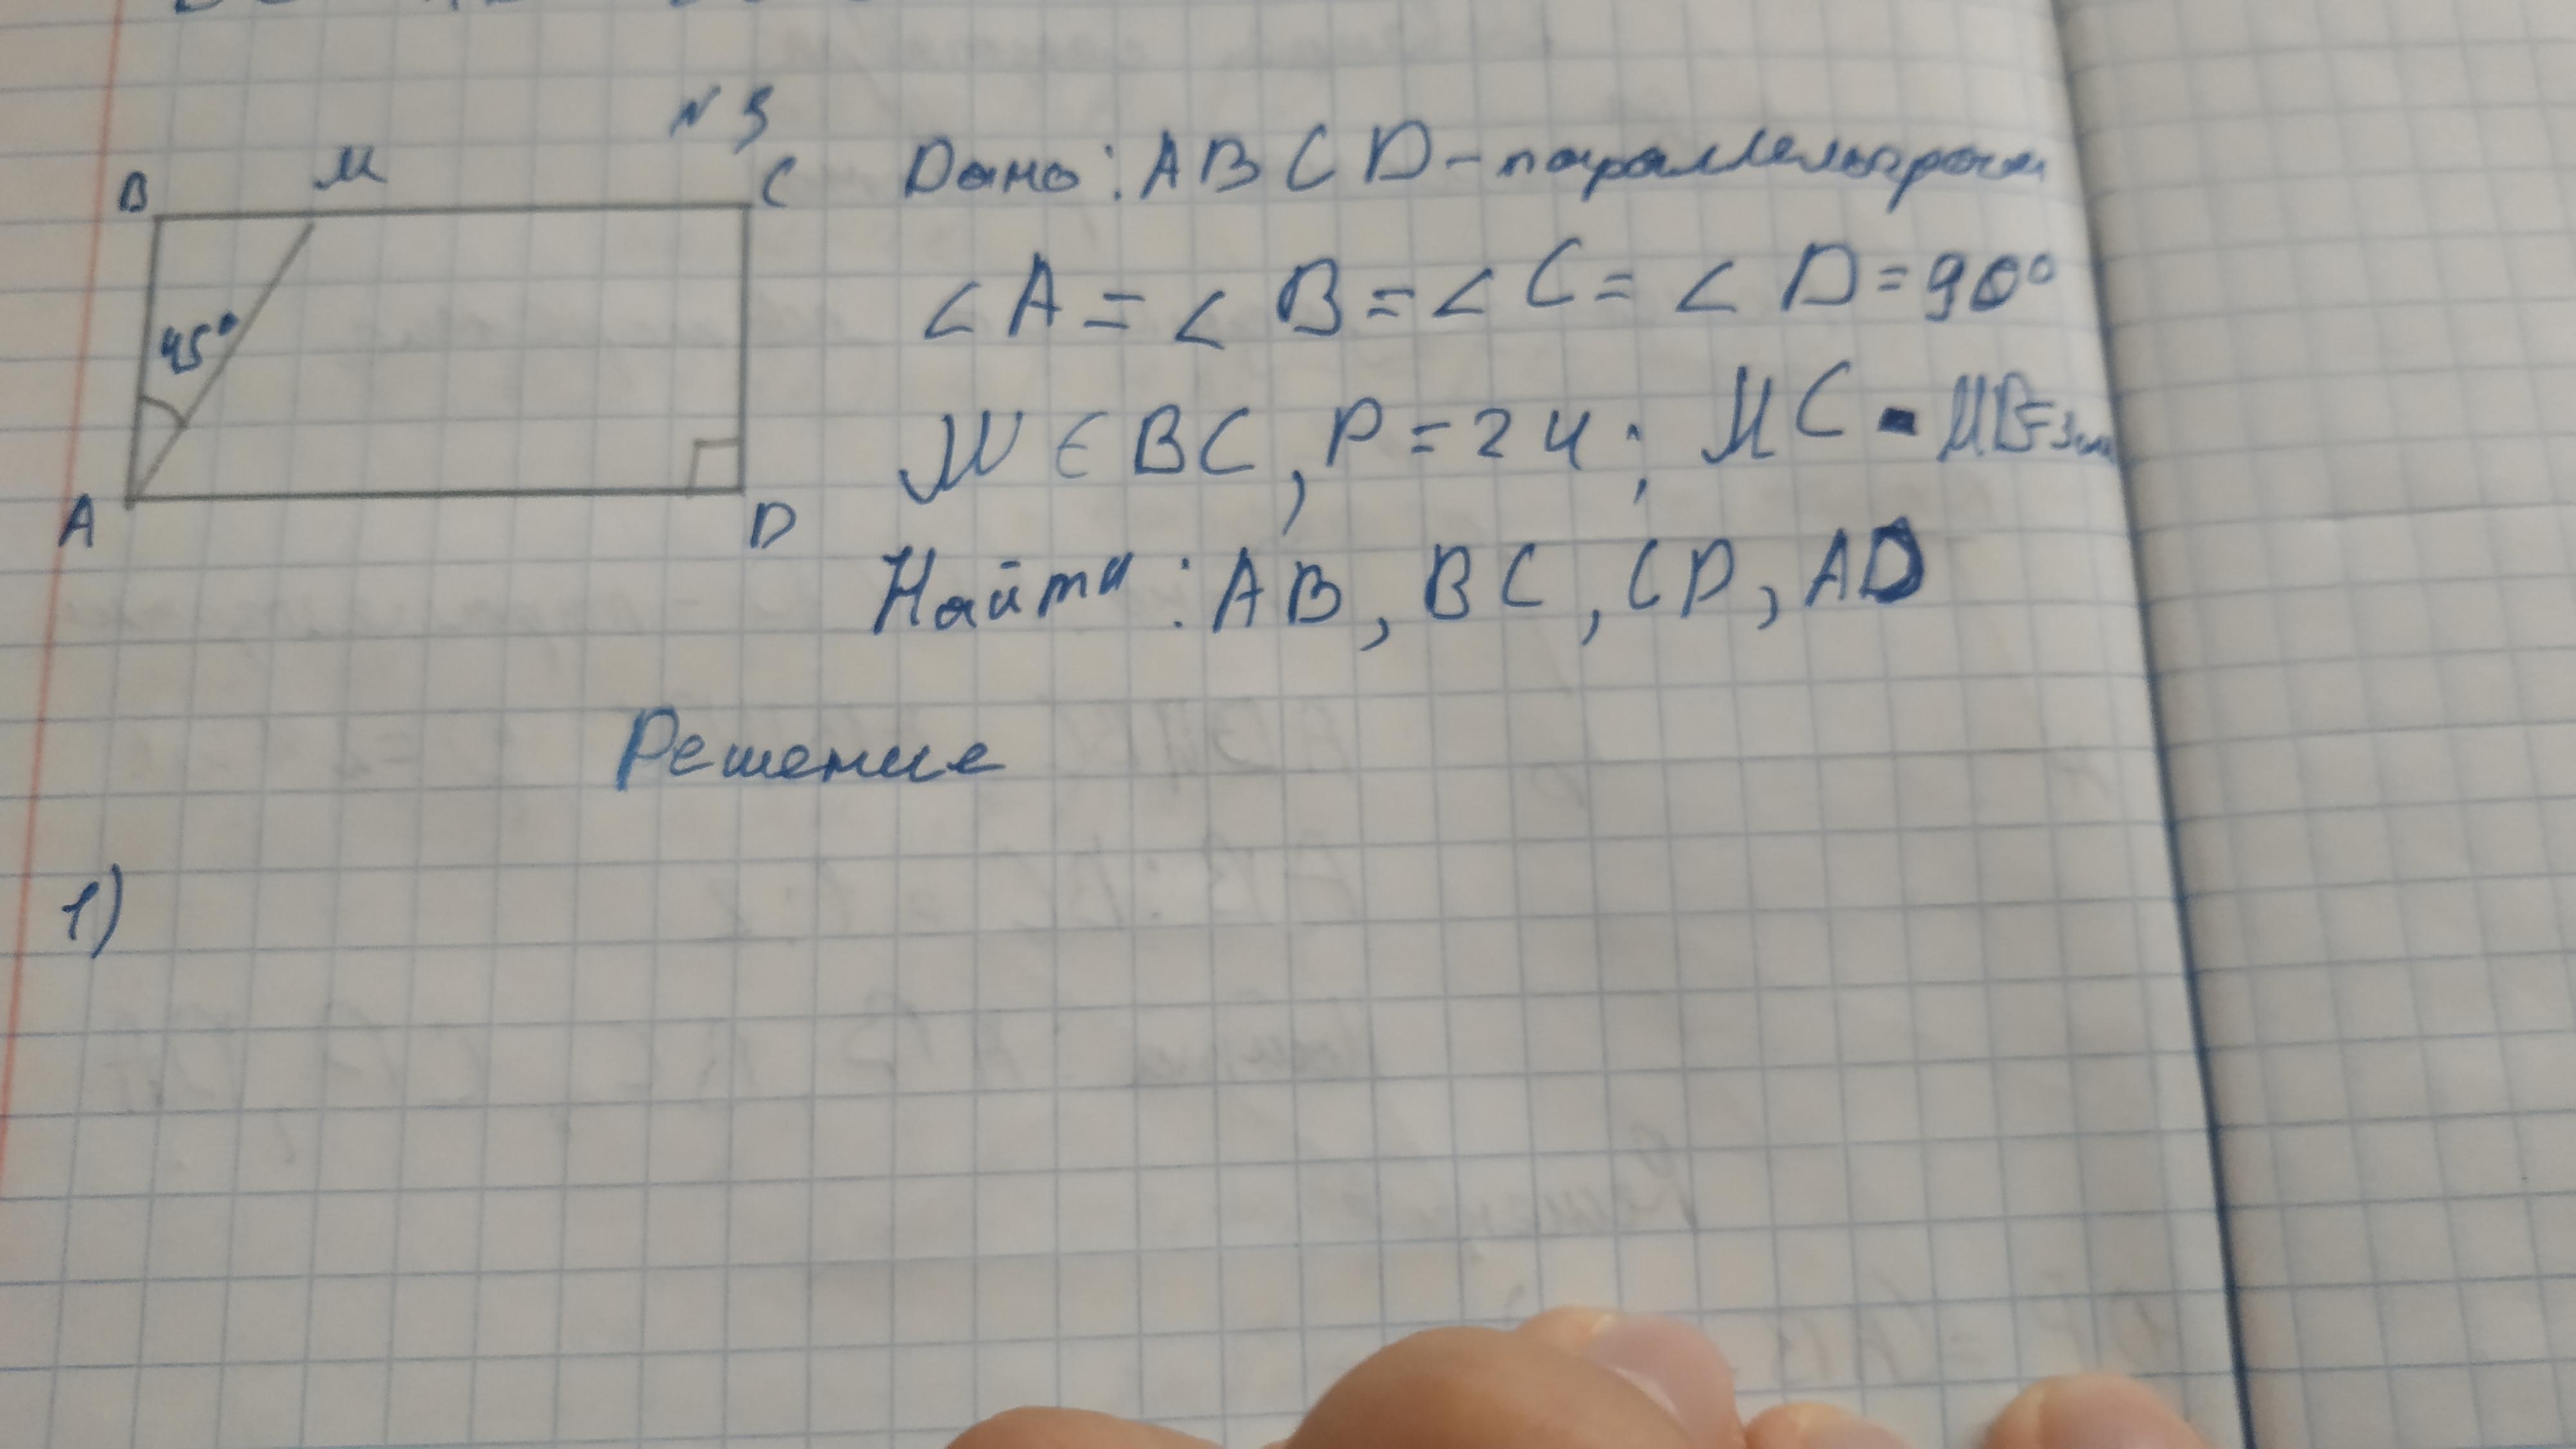 N 3
B M C
45°
A D
Дано: ABCD - параллелограмм
∠A = ∠B = ∠C = ∠D = 90°
M ∈ BC, P = 24; MC - MB = 3см
Найти: AB, BC, CD, AD
Решение
1)